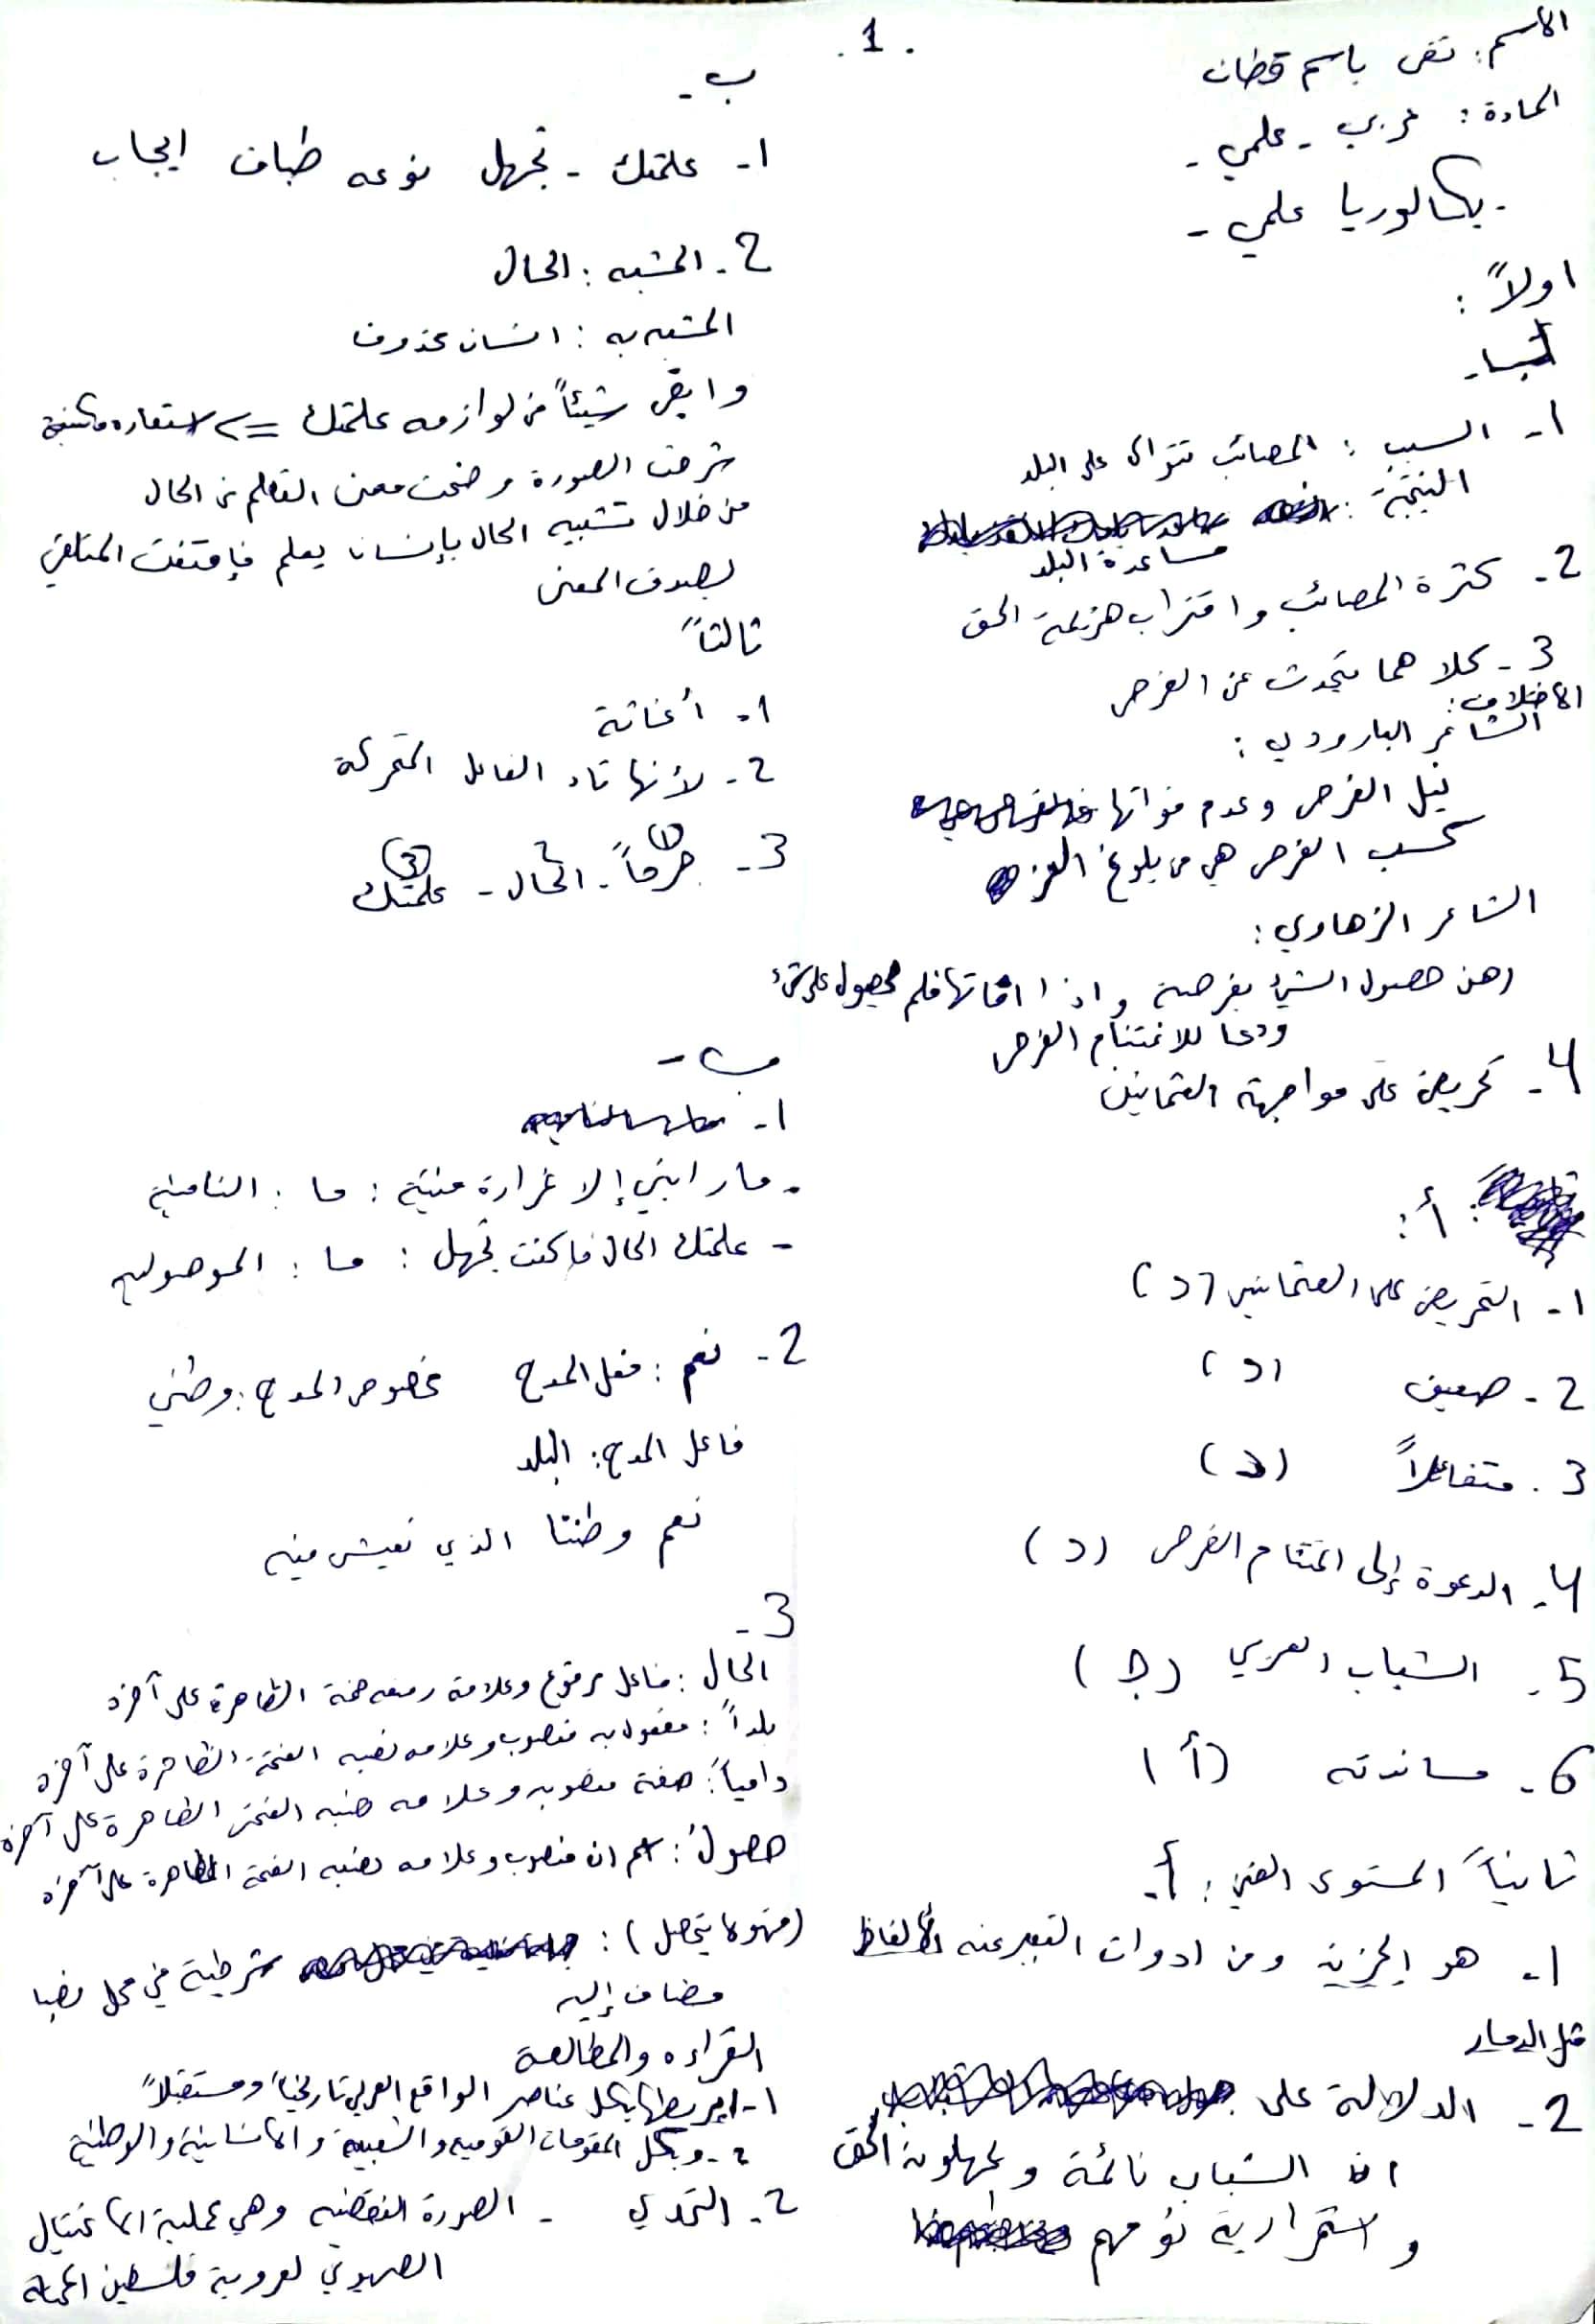 . 1 .
الاسم : تقى باسم قطان
المادة : عربي - علمي -
- بكالوريا علمي -
اولاً :
1- السبب : المصائب تتوالى على البلد
النتيجة :
مساعدة البلد
2- كثرة المصائب واقتراب هزيمة الحق
3- كلاهما يتحدث عن الفرص
الاختلاف :
الشاعر البارودي :
نيل الفرص وعدم فواتها
كسب الفرص هي من بلوغ العز
الشاعر الزهاوي :
رهن حصول الشيء بفرصة واذا افاتها فلم يحصول على شيء
ودعا للاغتنام الفرص
4- تحريض على مواجهة العثمانين
أ :
1- التحريض على العثمانيين (د)
2- ضعيف (د)
3. متفاعلاً (د)
4- الدعوة إلى اغتنام الفرص (د)
5- الشباب العربي (ج)
6- مساندته (أ)
ثانياً المستوى الفني : أ-
1- هو الحزن ومن ادوات التعبير عنه الألفاظ
مثل الدمار
2- الدلالة على
ان الشباب نائمة ويجهلون الحق
واستمرارية نومهم
ب -
1- علمتك - تجهل نوعه طباق ايجاب
2- المشبه : الحال
المشبه به : انسان محذوف
وابقى شيئاً من لوازمه علمتك => استعاره مكنية
شرحت الصورة وضحت معنى التعلم من الحال
من خلال تشبيه الحال بإنسان يعلم فإقتنت المتلقي
بصدق المعنى
ثالثاً
1- أغاثة
2- لأنها تاء الفاعل المتحركة
3- جرحاً (1) - الحال 2 - علمتك (3)
ب -
1-
- مارابني إلا غرارة فتية : ما : النافية
- علمتك الحال ماكنت تجهل : ما : الموصولية
2- نعم : فعل المدح مخصوص المدح : وطني
فاعل المدح : البلد
نعم وطننا الذي نعيش فيه
3-
الحال : فاعل مرفوع وعلامة رفعه ضمة الظاهرة على آخره
بلداً : مفعول به منصوب وعلامه نصبه الفتحة الظاهرة على آخره
دامياً : صفة منصوبه وعلامه نصبه الفتحة الظاهرة على آخره
حصولَ : اسم ان منصوب وعلامه نصبه الفتحة الظاهرة على آخره
(فهو لا يتحصل) : شرطية في محل نصبا
مضاف إليه
القراءه والمطالعة
1- لربطها بكل عناصر الواقع العربي تاريخياً ومستقبلاً
2- وبكل المقومات القوميه والشعبية والانسانية والوطنية
2- التحدي - الصورة النقضيه وهي عملية الاغتيال
الصهيوني لعروبة فلسطين المحتلة